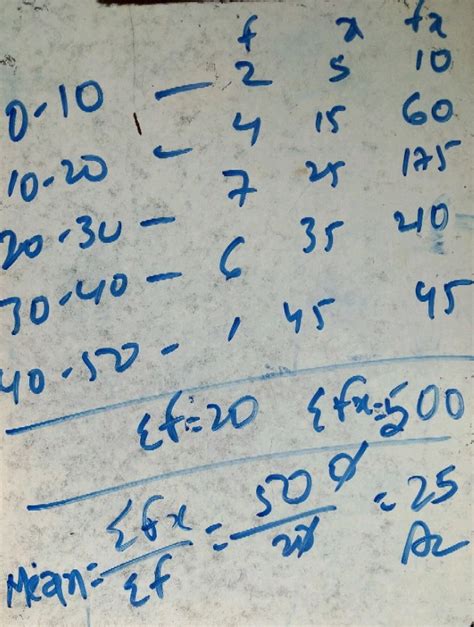 f x fx
0-10 — 2 5 10
10-20 - 4 15 60
20-30 - 7 25 175
30-40 - 6 35 210
40-50 - 1 45 45
Σf=20 Σfx=500
Mean = Σfx/Σf = 500/20 = 25